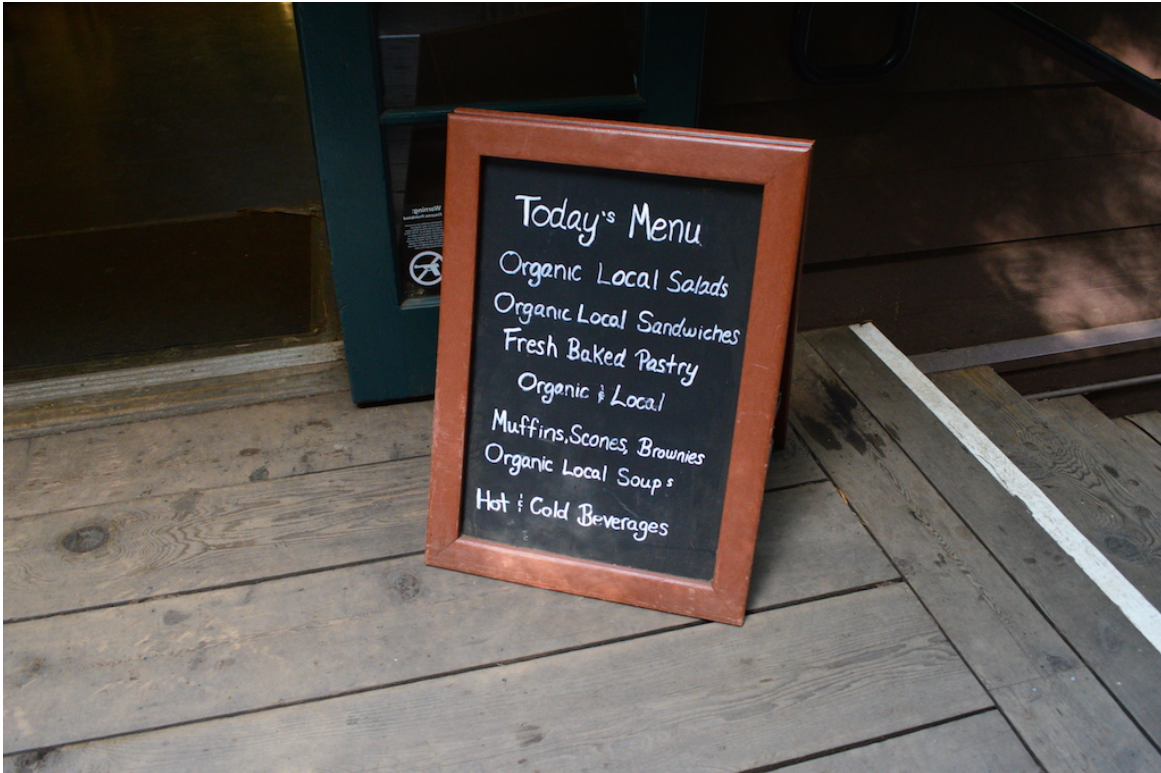 Today's Menu
Organic Local Salads
Organic Local Sandwiches
Fresh Baked Pastry
Organic & Local
Muffins, Scones, Brownies
Organic Local Soups
Hot & Cold Beverages
Warning: